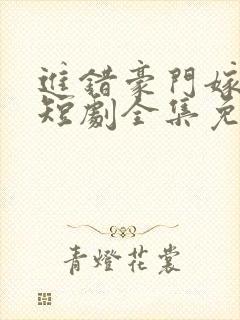 進錯豪門嫁
短劇全集免
青燈花裳